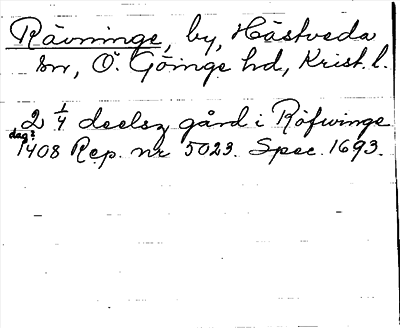 Rävninge, by, Hästveda
sn, Ö. Göinge hd, Krist. l.
2 1/4 deelsz gård i Röfwinge
dag? 1408 Rep. nr 5023. Spec. 1693.